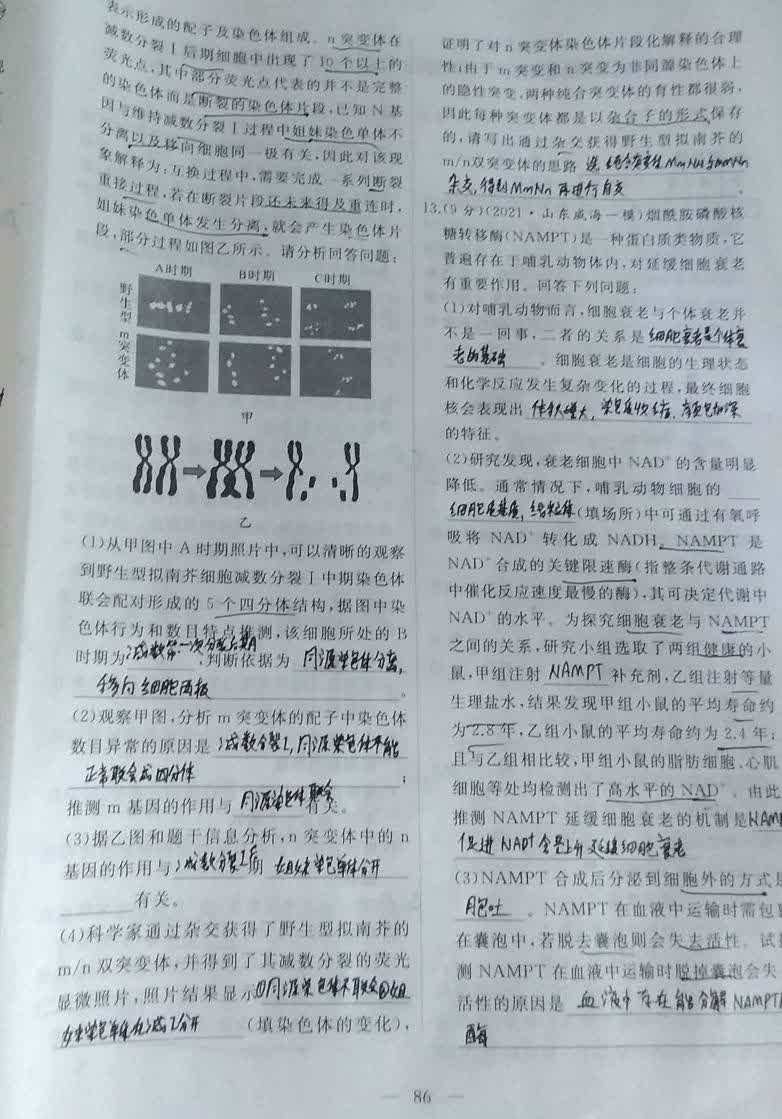 表示形成的配子及染色体组成。n突变体在
减数分裂Ⅰ后期细胞中出现了10个以上的
荧光点,其中部分荧光点代表的并不是完整
的染色体而是断裂的染色体片段,已知N基
因与维持减数分裂Ⅰ过程中姐妹染色单体不
分离以及移向细胞同一极有关,因此对该现
象解释为:互换过程中,需要完成一系列断裂
重接过程,若在断裂片段还未来得及重连时,
姐妹染色单体发生分离,就会产生染色体片
段,部分过程如图乙所示。请分析回答问题:
A时期 B时期 C时期
野生型
m突变体
甲
乙
(1)从甲图中A时期照片中,可以清晰的观察
到野生型拟南芥细胞减数分裂Ⅰ中期染色体
联会配对形成的5个四分体结构,据图中染
色体行为和数目特点推测,该细胞所处的B
时期为减数第一次分裂后期,判断依据为 同源染色体分离,
移向细胞两极。
(2)观察甲图,分析m突变体的配子中染色体
数目异常的原因是 减数分裂Ⅰ,同源染色体不能
正常联会成四分体;
推测m基因的作用与 同源染色体联会有关。
(3)据乙图和题干信息分析,n突变体中的n
基因的作用与减数分裂Ⅰ后期 姐妹染色单体分开
有关。
(4)科学家通过杂交获得了野生型拟南芥的
m/n双突变体,并得到了其减数分裂的荧光
显微照片,照片结果显示①同源染色体不联会②姐
妹染色单体在减Ⅰ分开(填染色体的变化),
证明了对n突变体染色体片段化解释的合理
性;由于m突变和n突变为非同源染色体上
的隐性突变,两种纯合突变体的育性都很弱,
因此每种突变体都是以杂合子的形式保存
的,请写出通过杂交获得野生型拟南芥的
m/n双突变体的思路
杂交,得到MmNn再进行自交。
13.(9分)(2021·山东威海一模)烟酰胺磷酸核
糖转移酶(NAMPT)是一种蛋白质类物质,它
普遍存在于哺乳动物体内,对延缓细胞衰老
有重要作用。回答下列问题:
(1)对哺乳动物而言,细胞衰老与个体衰老并
不是一回事,二者的关系是细胞衰老是个体衰
老的基础。细胞衰老是细胞的生理状态
和化学反应发生复杂变化的过程,最终细胞
核会表现出 体积增大,染色质收缩,颜色加深
的特征。
(2)研究发现,衰老细胞中NAD⁺的含量明显
降低。通常情况下,哺乳动物细胞的
细胞质基质,线粒体(填场所)中可通过有氧呼
吸将NAD⁺转化成NADH。NAMPT是
NAD⁺合成的关键限速酶(指整条代谢通路
中催化反应速度最慢的酶),其可决定代谢中
NAD⁺的水平。为探究细胞衰老与NAMPT
之间的关系,研究小组选取了两组健康的小
鼠,甲组注射 NAMPT 补充剂,乙组注射等量
生理盐水,结果发现甲组小鼠的平均寿命约
为2.8年,乙组小鼠的平均寿命约为2.4年;
且与乙组相比较,甲组小鼠的脂肪细胞、心肌
细胞等处均检测出了高水平的NAD⁺。由此
推测NAMPT延缓细胞衰老的机制是NAM
促进NAD⁺含量上升延缓细胞衰老
(3)NAMPT合成后分泌到细胞外的方式是
胞吐。NAMPT在血液中运输时需包
在囊泡中,若脱去囊泡则会失去活性。试
测NAMPT在血液中运输时脱掉囊泡会失
活性的原因是 血液中存在能分解NAMPT
酶
86